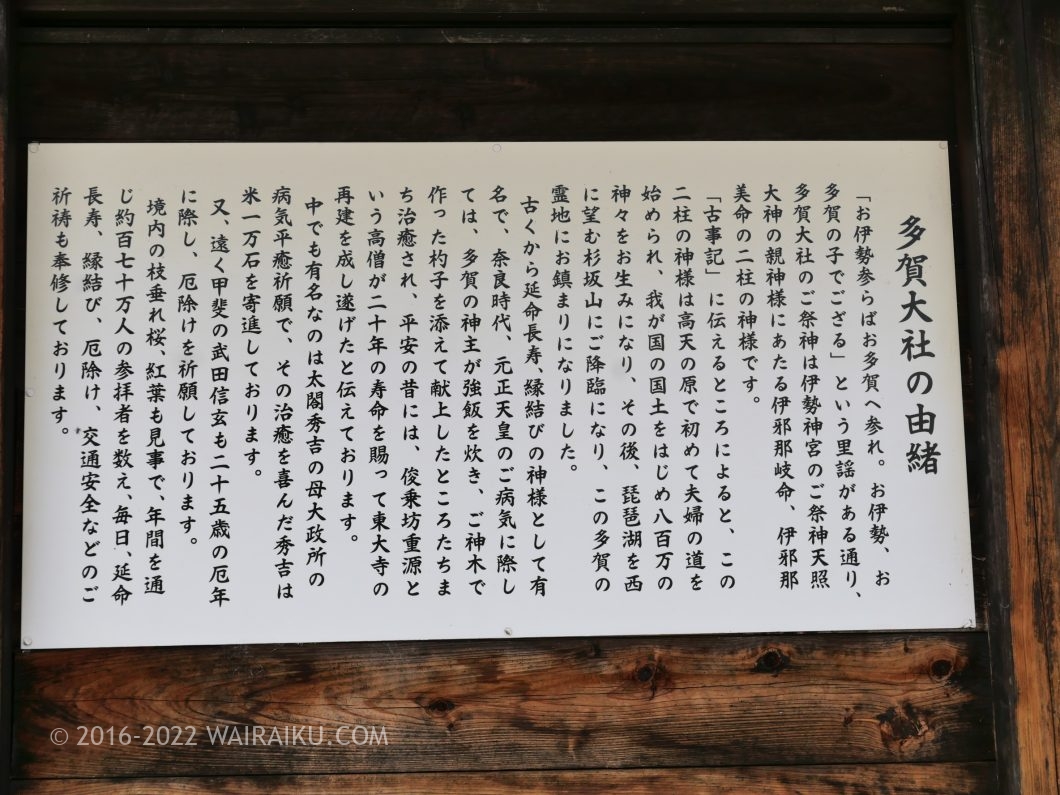 多賀大社の由緒
「お伊勢参らばお多賀へ参れ。お伊勢、お
多賀の子でござる」という里謡がある通り、
多賀大社のご祭神は伊勢神宮のご祭神天照
大神の親神様にあたる伊邪那岐命、伊邪那
美命の二柱の神様です。
「古事記」に伝えるところによると、この
二柱の神様は高天の原で初めて夫婦の道を
始められ、我が国の国土をはじめ八百万の
神々をお生みになり、その後、琵琶湖を西
に望む杉坂山にご降臨になり、この多賀の
霊地にお鎮まりになりました。
古くから延命長寿、縁結びの神様として有
名で、奈良時代、元正天皇のご病気に際し
ては、多賀の神主が強飯を炊き、ご神木で
作った杓子を添えて献上したところたちま
ち治癒され、平安の昔には、俊乗坊重源と
いう高僧が二十年の寿命を賜って東大寺の
再建を成し遂げたと伝えております。
中でも有名なのは太閤秀吉の母大政所の
病気平癒祈願で、その治癒を喜んだ秀吉は
米一万石を寄進しております。
又、遠く甲斐の武田信玄も二十五歳の厄年
に際し、厄除けを祈願しております。
境内の枝垂れ桜、紅葉も見事で、年間を通
じ約百七十万人の参拝者を数え、毎日、延命
長寿、縁結び、厄除け、交通安全などのご
祈祷も奉修しております。
© 2016-2022 WAIRAIKU.COM